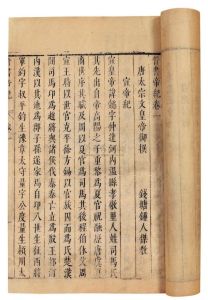 晉書帝紀卷一
唐太宗文皇帝御撰
錢塘鍾人傑
宣帝紀
宣皇帝諱懿字仲達河內溫縣孝敬里人姓司馬氏
其先出自帝高陽之子重黎爲夏官祝融歷唐虞夏
商世序其職及周以夏官爲司馬其後程伯休父周
宣王時以世官克平徐方錫以官族因而爲氏楚漢
間司馬卬爲趙將與諸侯伐秦秦亡立爲殷王都河
內漢以其地爲郡子孫遂家焉自卬八世生征西將
軍鈞字叔平鈞生豫章太守量字公度量生潁川太